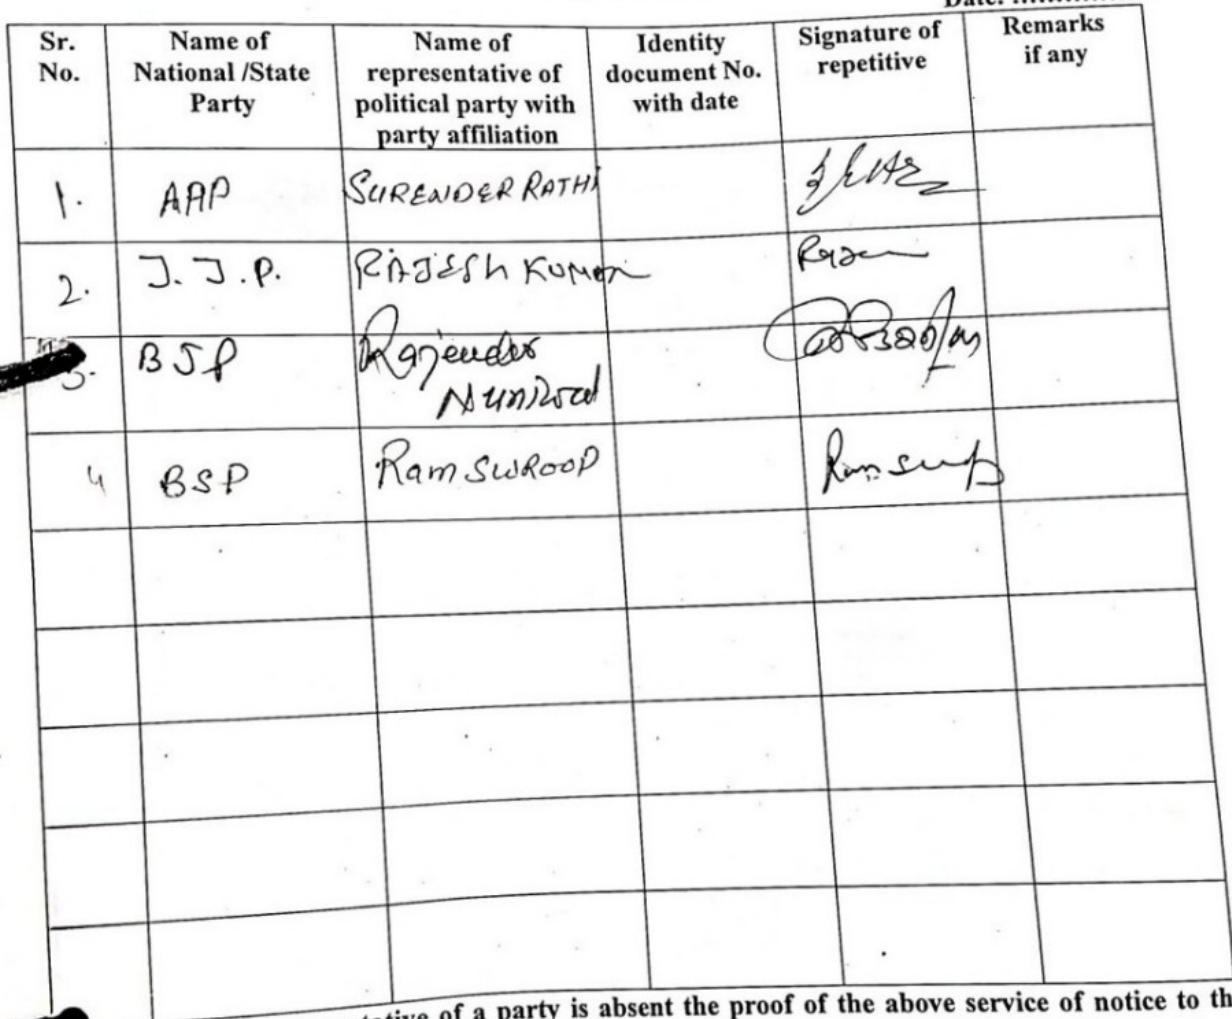 Date: ................
Sr. No. Name of National /State Party Name of representative of political party with party affiliation Identity document No. with date Signature of repetitive Remarks if any
1. AAP SURENDER RATHI
2. J.J.P. RAJESH KUMAR
3. BJP Rajender
4 BSP Ram SWROOP Ram
of a party is absent the proof of the above service of notice to